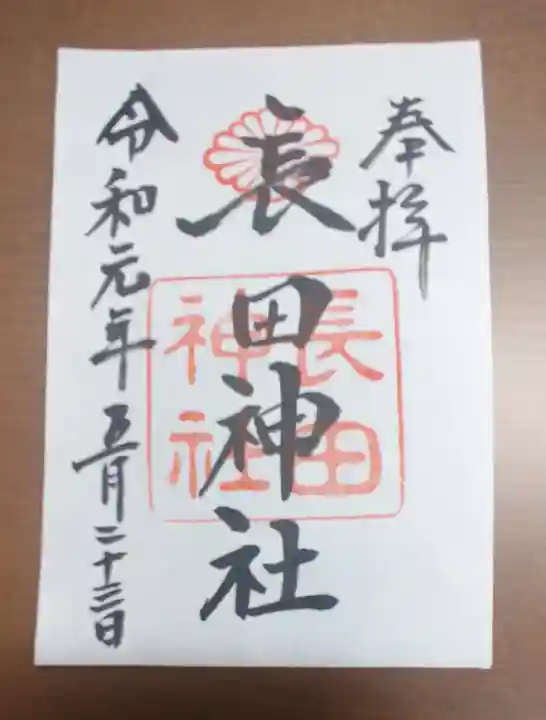 奉拝
長田神社
長田
神社
令和元年五月二十三日